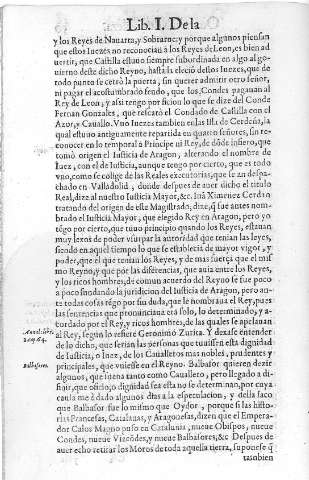 Lib. I. De la
y los Reyes de Nauarra, y Sobrarue: y porque algunos piensan
que estos Iuezes no reconocian a los Reyes de Leon, es bien ad
uertir, que Castilla estuuo siempre subordinada en algo al go-
uierno deste dicho Reyno, hasta la eleció destos Iuezes, que de
todo punto se cerrò la puerta, sin querer admitir otro señor,
ni pagar el acostumbrado feudo, que los Condes pagauan al
Rey de Leon; y assi tengo por ficion lo que se dize del Conde
Fernan Gonzales, que rescatò el Condado de Castilla con el
Azor, y Cauallo. Vuo Iuezes tambien en la Isla de Cerdeña, la
qual estuuo antiguamente repartida en quatro señores, sin re-
conocer en lo temporal à Principe ni Rey, de dóde infiero, que
tomò origen el Iusticia de Aragon, alterando el nombre de
Iuez, con el de Iusticia, aunque tengo por cierto, que es todo
vno, como se colige de las Reales executorias, que se an despa-
chado en Valladolid, donde despues de auer dicho el titulo
Real, dize al nuestro Iusticia Mayor, &c. Iuã Ximenez Cerdan
tratando del origen de este Magistrado, dize, q̃ fue antes nom-
brado el Iusticia Mayor, que elegido Rey en Aragon, pero yo
tẽgo por cierto, que tuuo principio quando los Reyes, estauan
muy lexos de poder vsurpar la autoridad que tenian las leyes,
siendo en aquel tiempo lo que se establecia de mayor vigor, y
poder, que el que tenian los Reyes, y de mas fuerça que el mis
mo Reyno, y que por las diferencias, que auia entre los Reyes,
y los ricos hombres, de comun acuerdo del Reyno se fue poco
a poco fundando la juridicion del Iusticia de Aragon, pero an-
te todas cosas tẽgo por sin duda, que le nombraua el Rey, pues
las sentencias que pronunciaua erà solo, lo determinado, y a-
bordado por el Rey, y ricos hombres, de las quales se apelauan
al Rey, segun lo refiere Geronimo Zurita. Y de ta se entender
de lo dicho, que serian las personas que tuuiessen esta dignidad
de Iusticia, o Iuez, de los Caualleros mas nobles, prudentes y
principales, que vuiesse en el Reyno. Balbasor quieren dezir
algunos, que suena tanto como Cauallero, pero llegado a dis-
finir, que oficio, o dignidad sea esta no se determinan, por cuya
causa me à dado algunos dias a la especulacion, y della saco
que Balbasor fue lo mismo que Oydor, porque si las histo-
rias Francesas, Catalanas, y Aragonesas, dizen que el Empera-
dor Calos Magno puso en Cataluña, nueue Obispos, nueue
Condes, nueue Vizcõdes, y nueue Balbasores, &c Despues de
auer echo retirar los Moros de toda aquella tierra, supone se q̃
tambien
Balbasores.